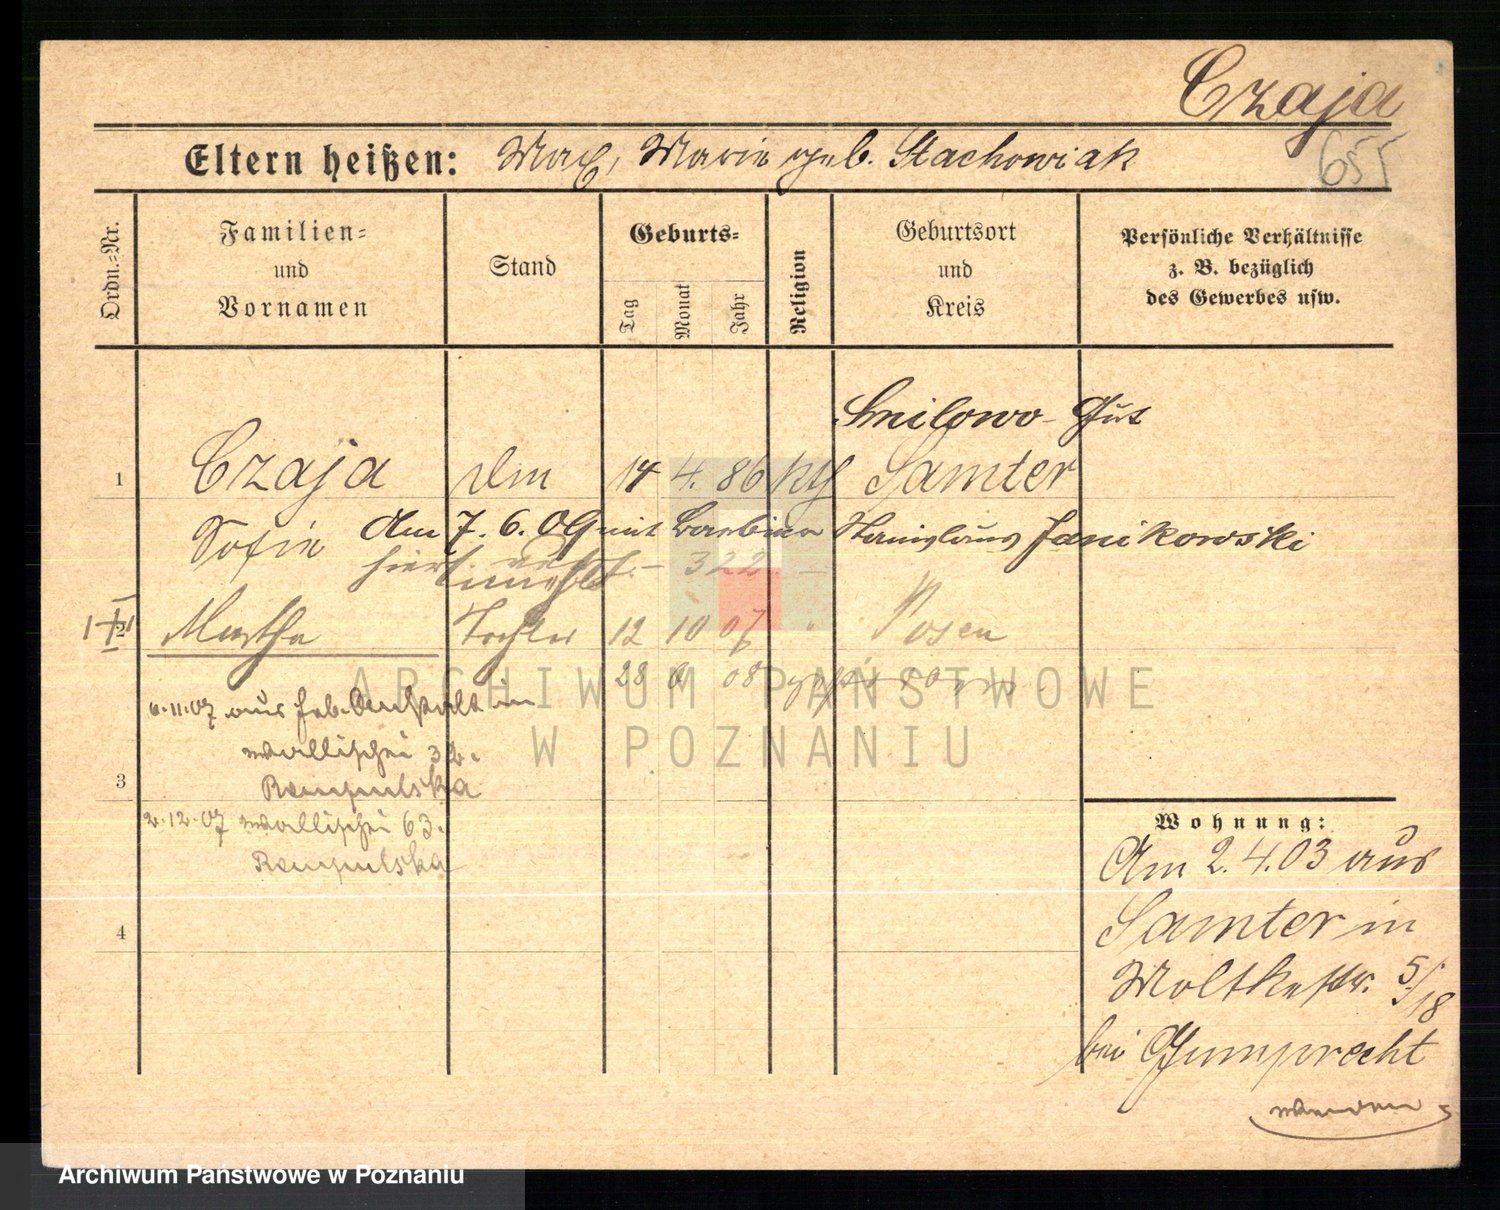 Czaja
Eltern heißen: Max, Marie geb. Stachowiak
655
Ordn.-Nr.
Familien-
und
Vornamen
Stand
Geburts-
Tag
Monat
Jahr
Religion
Geburtsort
und
Kreis
Persönliche Verhältnisse
z. B. bezüglich
des Gewerbes usw.
Smilowo-Gut
1 Czaja 14 4. 86 kth Samter
Sofie Am 7. 6. 09 mit Stanislaus Janikowski
hier - 322 -
2 Martha Tochter 12 10 07 " Posen
28 6 08 gest.
6.11.07 aus Geb. Anstalt in
Wallischei 32.
3
2.12.07 Wallischei 63.
4
Wohnung:
Am 2.4.03 aus
Samter in
Moltkestr. 5/18
bei Gumprecht
ARCHIWUM PAŃSTWOWE
W POZNANIU
Archiwum Państwowe w Poznaniu